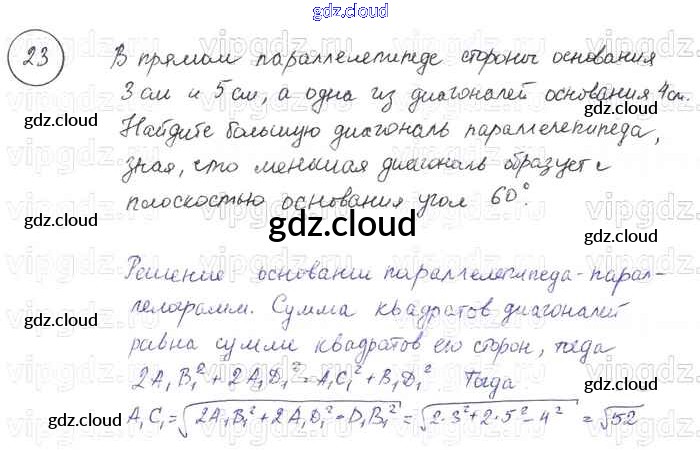 gdz.cloud
23 В прямом параллелепипеде стороны основания
3 см и 5 см, а одна из диагоналей основания 4 см.
gdz.cloud gdz.cloud
Найдите большую диагональ параллелепипеда,
зная, что меньшая диагональ образует с
плоскостью основания угол 60°.
gdz.cloud gdz.cloud gdz.cloud
Решение основании параллелепипеда - парал-
лелограмм. Сумма квадратов диагоналей
gdz.cloud gdz.cloud
равна сумме квадратов его сторон, тогда
2A₁B₁² + 2A₁D₁² = A₁C₁² + B₁D₁². Тогда
gdz.cloud gdz.cloud
A₁C₁ = √(2A₁B₁² + 2A₁D₁² - D₁B₁²) = √(2·3² + 2·5² - 4²) = √52